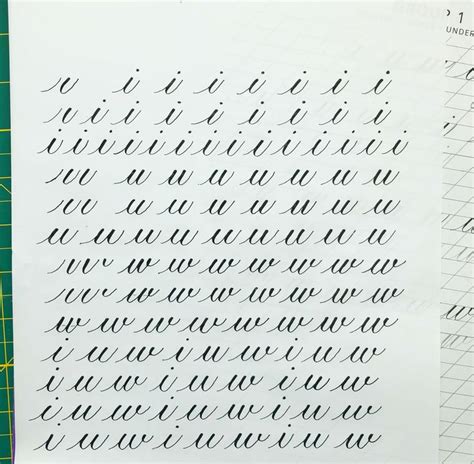 i i i i i i i
i i i i i i i i
i i i i i i i i i i i i i i
u u u u u u u
u u u u u u u
u u u u u u u u u
w w w w w w w
w w w w w w w
w w w w w w w w w
i u w i u w i u w
i u w i u w i u w
i u w i u w i u w
i u w i u w i u w
1
UNDER